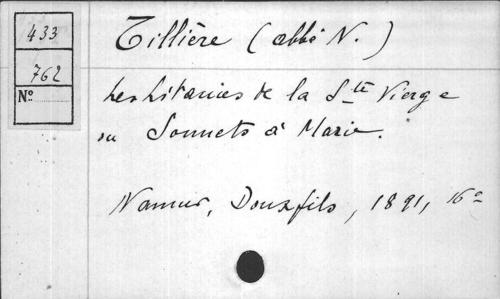 433
762
N.o
Tillière (abbé N.)
Les litanies de la Ste Vierge
ou Sonnets à Marie.
Namur, Douxfils, 1891, 16o